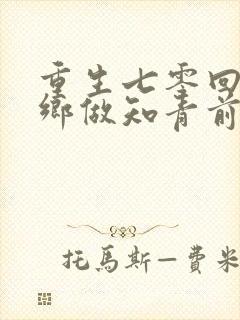 重生七零回
鄉做知青前
托馬斯—費米